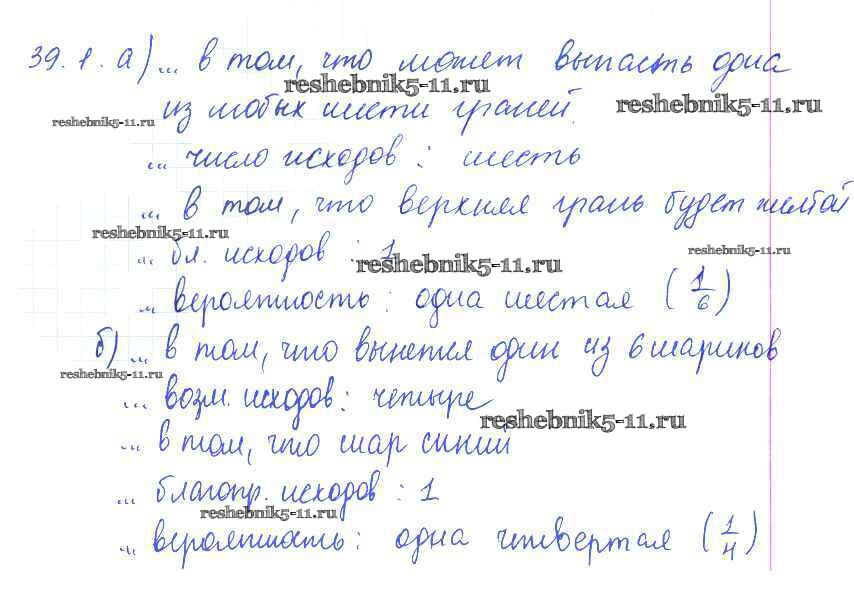 39. 1. а) ... в том, что может выпасть одна
reshebnik5-11.ru
из любых шести граней.
reshebnik5-11.ru
reshebnik5-11.ru
... число исходов : шесть
... в том, что верхняя грань будет желтой
reshebnik5-11.ru
... бл. исходов : 1
reshebnik5-11.ru
reshebnik5-11.ru
... вероятность : одна шестая (1/6)
б) ... в том, что вынется один из 6 шариков
reshebnik5-11.ru
... возм. исходов : четыре
reshebnik5-11.ru
... в том, что шар синий
... благопр. исходов : 1
reshebnik5-11.ru
... вероятность : одна четвертая (1/4)